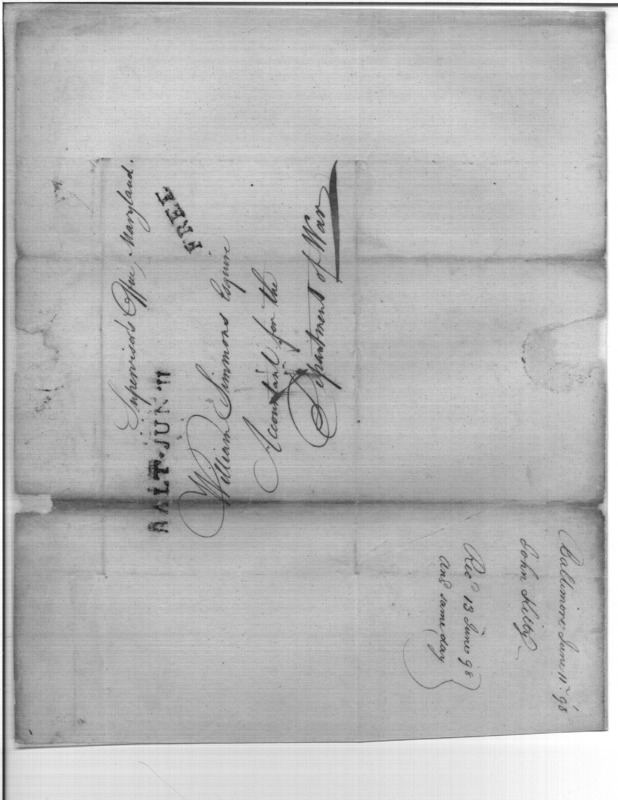 Supervisor's Office, Maryland.
FREE
BALT. JUN 11
William Simmons Esquire
Accountant for the
Department of War
Baltimore June 11th 98
John Kilty
Recd 13 June 98
Ans same day